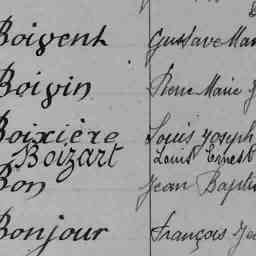 Boivent Gustave Mar
Boivin Pierre Marie J
Boixière Louis Joseph
Boizart Louis Ernest
Bon Jean Bapti
Bonjour François Je